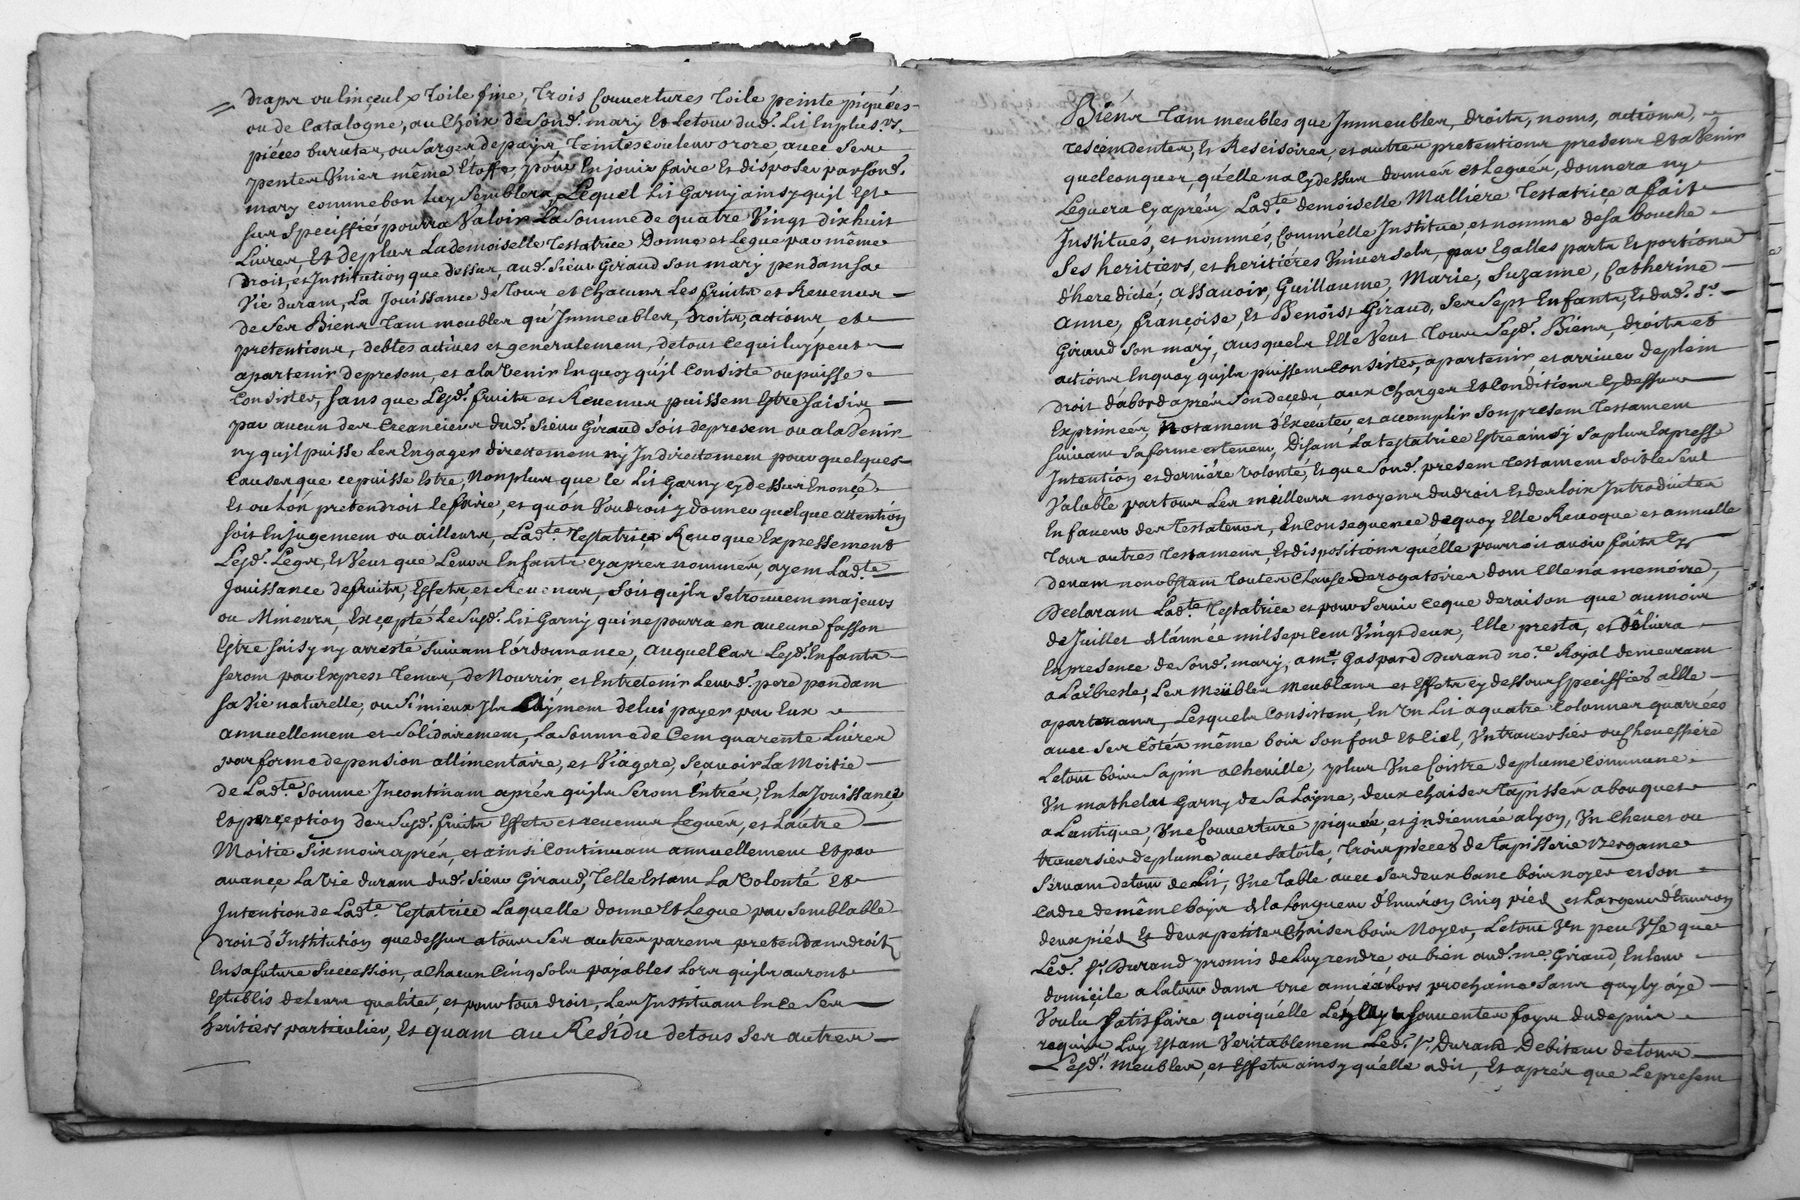 drapx ou linçeulx Toile fine, Trois Couvertures Toile peinte piquées
ou de Catalogne, au Choix de Sond. mary Et letour dud. Lit En plus.rs
piéces buratea, ou Sarges de païs, Teintes couleur orore avec Ses
pentes Unies même Etoffe, pour En jouir faire Et disposer par Sond.
mary comme bon Luy Semblera, Lequel Lit Garny ainsy quil Est
Sus Speciffié pourra Valoir La Somme de quatre Vingt dix huit
Livres, Et de plus La demoiselle Testatrice Donne et Legue par même
Droit, et Institution que dessus, aud. Sieur Giraud Son mary pendam Sa
Vie duram, La Jouissance de Tous et Chacuns Les fruits et Revenus
de Ses Biens Tam meubles qu'Immeubles, droits, actions, et
prétentions, debtes actives et generalement, de tout ce qui luy peut
apartenir de presem, et a la Venir En quoy qu'jl Consiste ou puisse
Consister, Sans que Lesd. fruits et Revenus puissem Estre Saisis
par aucun des Creanciers dud. Sieur Giraud Soit de presem ou a la Venir
ny qu'jl puisse Les Engager directemem ny Indirectemem pour quelques
Causes que ce puisse Estre, Non plus que le Lit Garny cy dessus Enoncé
Et ou Lón pretendroit le faire, et qu'ón Voudroit y donner quelque attention
Soit En jugemem ou ailleurs, Lad.te Testatrice Revoque Expressement
Lesd. Legs, Et Veut que Leurs Enfants cy apres nommés, ayem Lad.te
Jouissance de fruits, Effets, et Revenus, Soit qujls Se trouvem majeurs
ou Mineurs, Excepté Le Susd. Lit Garny qui ne pourra en aucune fasson
Estre Saisy ny arresté Suivam L'órdonnance, Auquel Cas Lesd. Enfants
Serom par Express Tenus, de Nourrir, et Entretenir Leurd. pere pendam
Sa Vie naturelle, ou Si mieux Jls Aÿmem de lui payer par Eux
annuellemem et Solidairemem, La Somme de Cem quarente Livres
par forme de pension allimentaire, et Viagere, Sçavoir La Moitie
de Lad.te Somme Incontinam aprés qujls Serom Entrés, En La Jouissançe
Et perçeption des Susd. fruits Effets et revenus Legués, et Lautre
Moitie Six mois aprés, et ainsi Continuam annuellemem Et par
avançe La Vie duram dud. Sieur Giraud, Telle Estam La Volonté Et
Intention de Lad.te Testatrice Laquelle donne Et Legue par Semblable
droit d'Institution que dessus a tous Ses autres parens pretendans droit
En Sa future Succession, a Chacun Cinq Sols payables Lors qujls auront
Establis de Leurs qualités, et pour tout droit, Les Instituam En ce Ses
heritiers particulier, Et quam au Residu de tous Ses autres
Biéns Tam meubles que Immeubles, droits, noms, actions,
rescendentes, Et Rescisoires, et autres pretentions presens Et a Venir
quelconques, qu'elle na cy dessus donnés et Legués, donnera ny
Leguera cy aprés, Lad.te demoiselle Malliére Testatriçe a fait
Institués, et nommés, Comm'élle Institue, et nomme de Sa bouche
Ses heritiers, et heritiéres Universels, par Egalles parts Et portions
d'heredicté; assavoir, Guillaume, Marie, Suzanne, Catherine
Anne, françoise, Et Benoist Giraud, Ses Sept Enfants, Et dud. S.r
Giraud Son mary, ausquels Elle Veut Tous Sesd. Biéns, droits et
actions En quoy qujls puissem Consister, apartenir, et arriver de plein
droit d'abord aprés Son deçeds, aux Charges Et Conditions Cy dessus
Exprimées, Notamem d'Executer, et accomplir Son presem Testamem
Suivam Sa forme et teneur, Disam La testatrice Estre ainsy Sa plus Expresse
Intention et derniére Volonté, Et que Sond. presem Testamem Soit le Seul
Valable par tous Les meilleurs moyens du droit Et des loix Introduites
En faveur des Testateurs, En Consequence de quoy Elle Revoque et annulle
Tous autres Testamens, Et dispositions qu'élle pourroit avoir faits Cy
devam nonobstam toutes Clauses derogatoires dom Elle n'a memoire,
Declaram Lad.te Testatrice et pour Servir ce que de raison que au mois
de Juillet de l'année mil Sept Cem Vingt deux, Elle presta, et délivra
En presence de Sond. mary, a m.e Gaspard Durand no.re Royal demeuram
a Larbresle, Les Meübles meublans et Effets cy dessous Speciffiés a Elle
apartenans, Lesquels Consistem, En Un Lit a quatre Colonnes quarrées
avec Ses Côtés même bois Son fond Et Ciel, Un traversier ou Chevessiére
Le tout bois Sapin a Cheville, plus Une Coistre de plume Commune
Un mathelat Garny de Sa Laine, deux chaises Tapissés a bouquet
a Lantique, Une Couverture piquée, et jndiennée a Lyon, Un Chevet ou
traversier de plume avec Sa toile, Trois pieces de Tapisserie Bergame
Servam de tour de Lit, Une Table avec Ses deux banc bois noyer et Son
Cadre de même bois de la Longueur d'Environ Cinq pied, et Largeur d'Environ
deux piéd, Et deux petites Chaises bois Noyer, Le tout Un peu Usé que
Led. S.r Durand promis de Luy rendre ou bien aud. m.e Giraud, En leur
domicile a Latour dans Une année Lors prochaine Sans quyly áye
Voulu Satisfaire quoiqu'élle Souventes foys du depuis
requis Luy Estam Veritablemem Led. S.r Durand Debiteur de tous
Lesd. Meubles, et Effets ainsy qu'élle a dit, Et aprés que Le presem